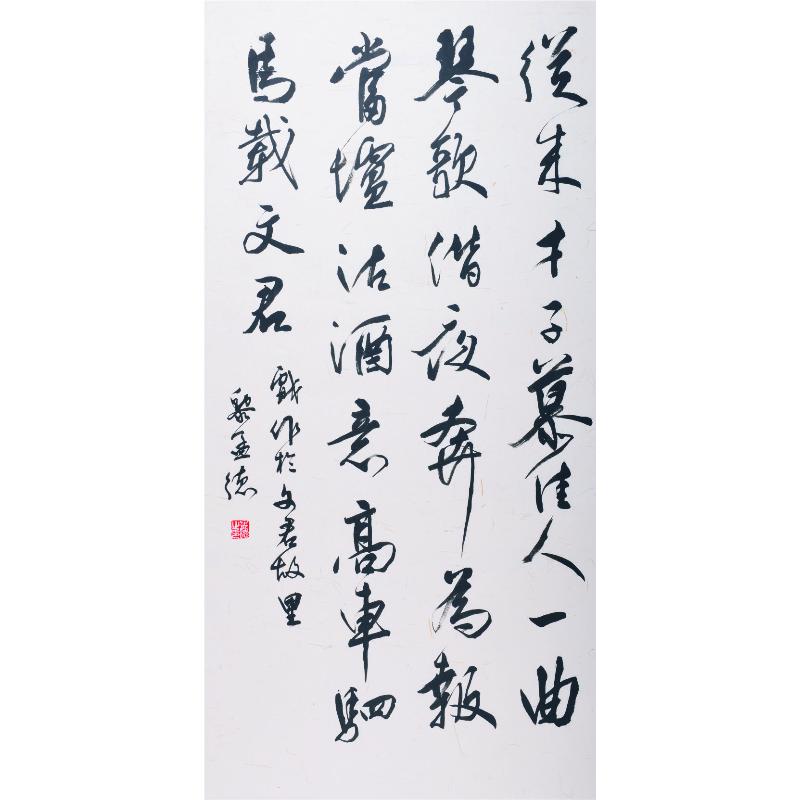 從来才子慕佳人一曲
琴歌偕夜奔為報
當壚沽酒意高車駟
馬載文君
戲作於文君故里
黎孟德